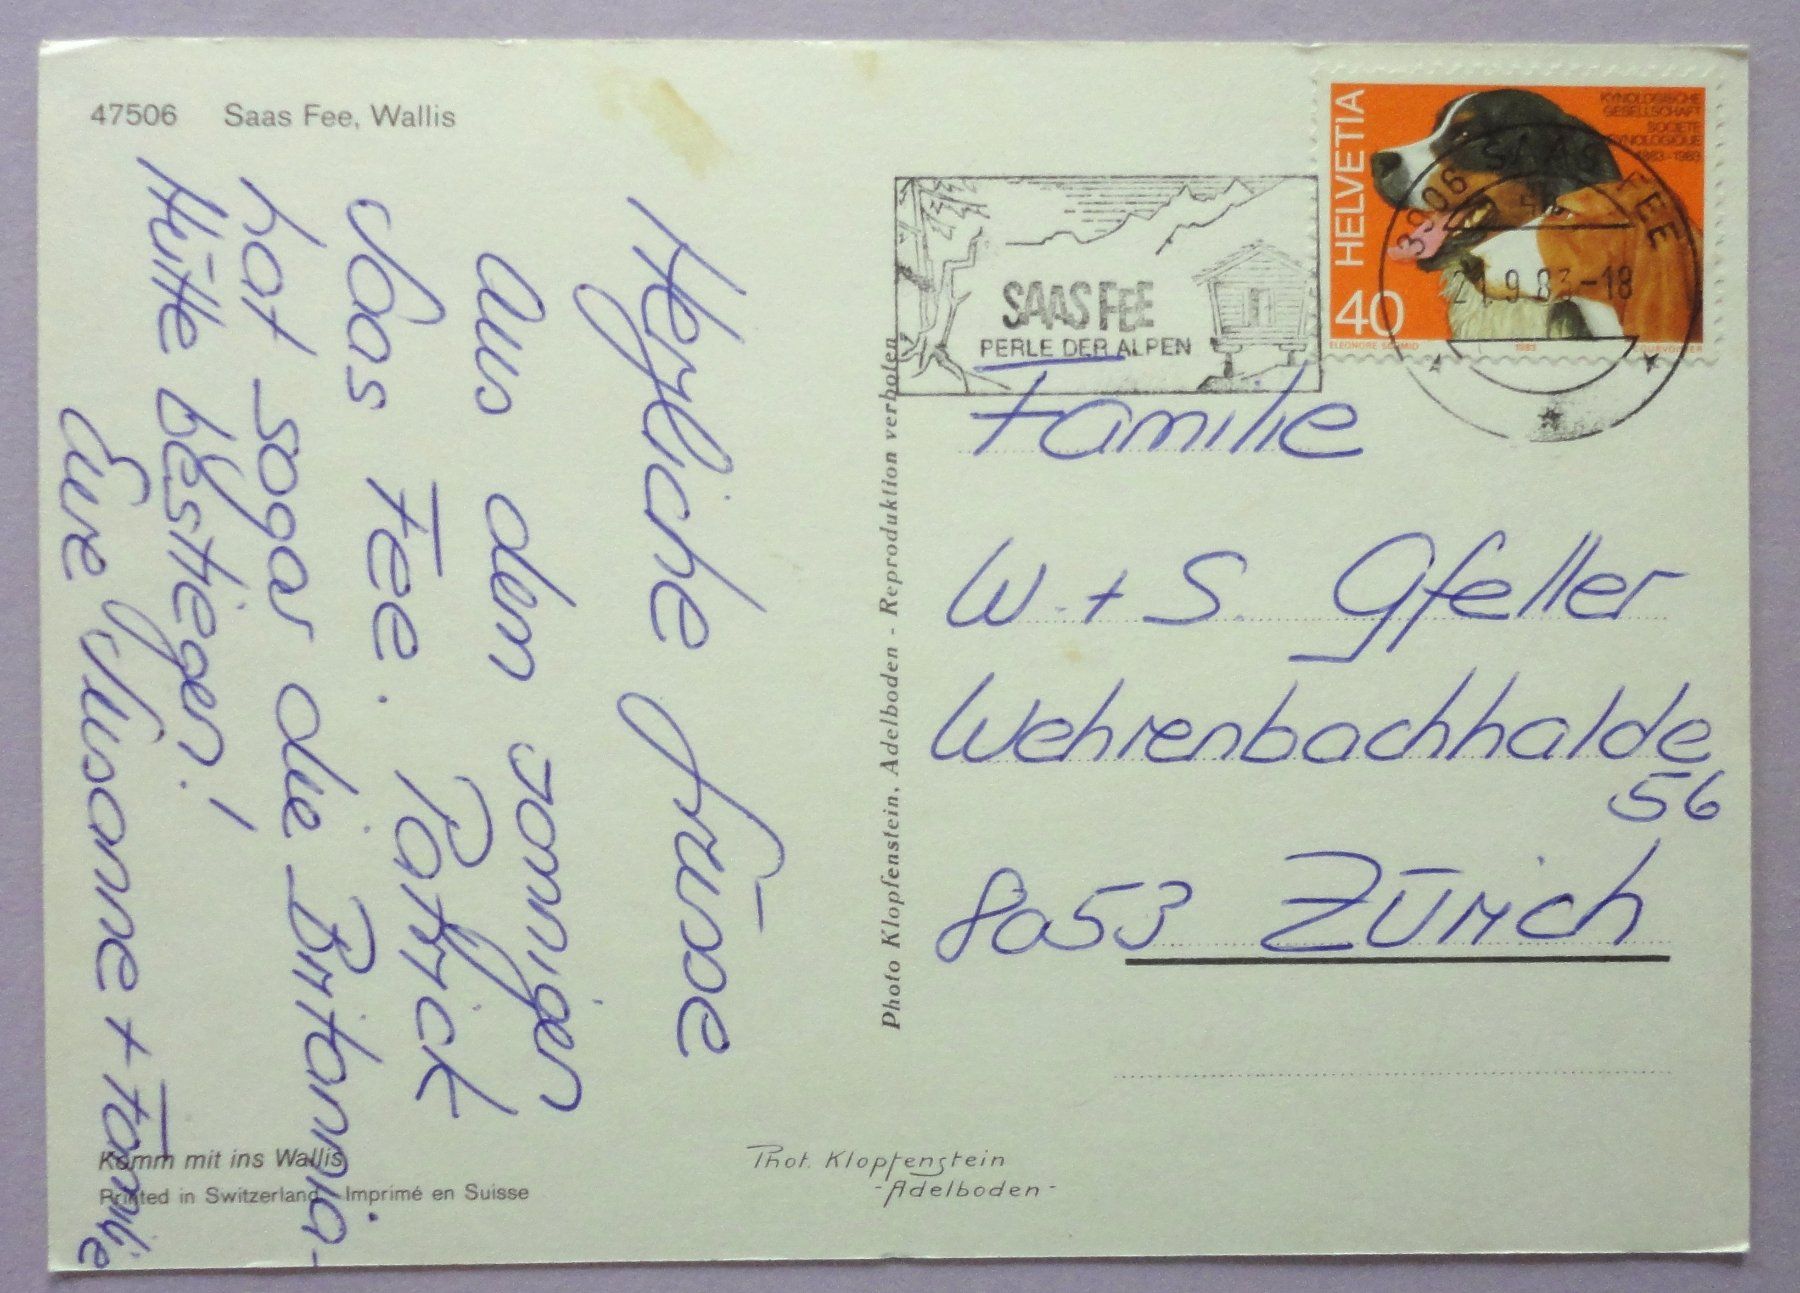 47506 Saas Fee, Wallis
Herzliche Grüsse
Aus dem sonnigen
Saas Fee. Patrick
hat sogar die Britannia-
Hütte bestiegen!
Eure Susanne + Familie
Komm mit ins Wallis
Printed in Switzerland Imprimé en Suisse
Photo Klopfenstein, Adelboden - Reproduktion verboten
Phot. Klopfenstein
-Adelboden-
SAAS FEE
PERLE DER ALPEN
HELVETIA
40
KYNOLOGISCHE
GESELLSCHAFT
SOCIETE
CYNOLOGIQUE
1883-1983
ELEONORE SCHMID 1983 COURVOISIER
3906 SAAS FEE
21.9.83-18
Familie
W. + S. Gfeller
Wehrenbachhalde
56
8053 Zürich